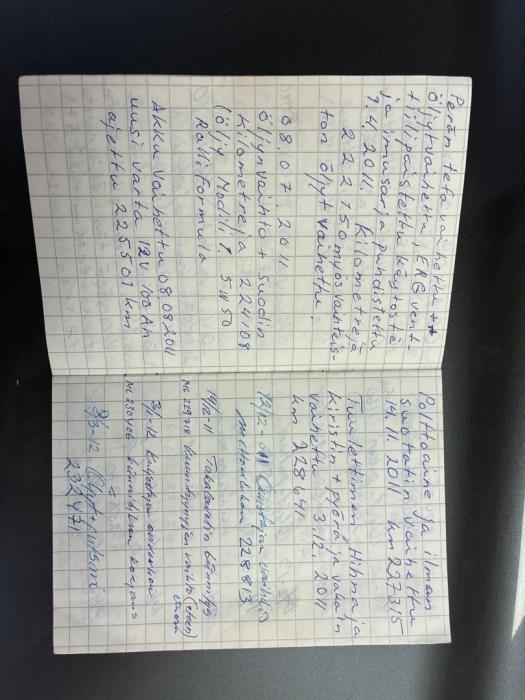 Perän tefa vaihettu ++
öljyt vaihettu, ERG vent-
tiili poistettu käytöstä
ja imusarja puhdistettu
7.4.2011. Kilometrejä
222750 myös vaihteis-
ton öljyt vaihettu.
08.07.2011
öljynvaihto + suodin
Kilometrejä 224108
(öljy Mobil 1. 5W50
Ralli Formula
Akku vaihettu 08.08.2011
uusi Varta 12V 100Ah
ajettu 225501 km
Polttoaine ja ilman
suotatin vaihettu
14.11.2011 km 227315
Tuulettimen Hihna ja
kiristin + pyörä ja
vaihettu 3.12.2011
km 228641
vaihto
228813
19/12-11
ML 229718 vaihto (eteen)
3/1-12
ML 230406 korjaus
3/3-12
232471